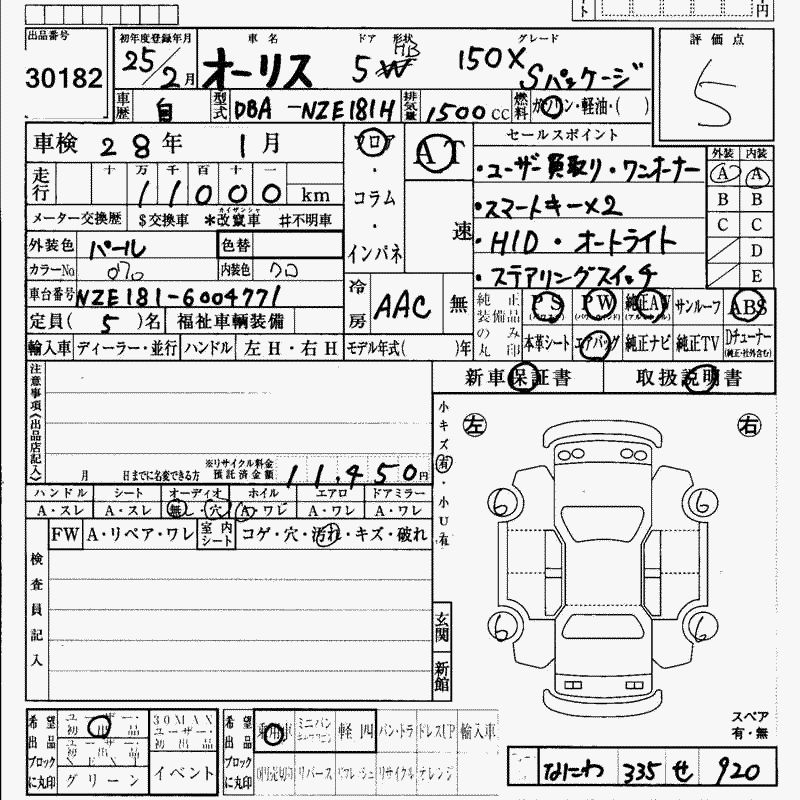 ト 円
出品番号 30182
初年度登録年月 25年 2月
車名 オーリス
ドア 5 形状 HB
グレード 150X Sパッケージ
評価点 5
車歴 自 型式 DBA-NZE181H 排気量 1500CC 燃料 ガソリン・軽油・( )
車検 28年 1月
走行 十 万 千 百 十 一
11000 km
メーター交換歴 $交換車 *改竄車 #不明車
カイザンシャ
外装色 パール 色替
カラーNo 070 内装色 クロ
車台番号 NZE181-6004771
定員( 5 )名 福祉車輌装備
輸入車 ディーラー・並行 ハンドル 左H・右H モデル年式( )年
フロア・コラム・インパネ
AT 速
冷房 AAC 無
セールスポイント
・ユーザー買取り・ワンオーナー
・スマートキー×2
・HID・オートライト
・ステアリングスイッチ
外装 内装
A A
B B
C C
D
E
純正装備品のみ丸印
PS PW 純正AW サンルーフ ABS
本革シート エアバッグ 純正ナビ 純正TV Dチューナー
(純正・社外含む)
新車保証書 取扱説明書
注意事項《出品店記入》
月 日までに名変できる方
※リサイクル料金預託済金額 11,450円
ハンドル シート オーディオ ホイル エアロ ドアミラー
A・スレ A・スレ 無し・穴 A・ワレ A・ワレ A・ワレ
FW A・リペア・ワレ 室内シート コゲ・穴・汚れ・キズ・破れ
検査員記入
小キズ有・小U有
左 右
6 6
6 6
玄関
新館
スペア
有・無
希望出品ブロックに丸印
ユーザー・初出品
30MAXユーザー・初出品
グリーン イベント
希望出品ブロックに丸印
乗用車 ミニバン 軽四 バン・トラ ドレスUP 輸入車
リバース リフレッシュ リサイクル チャレンジ
なにわ 335 せ 920